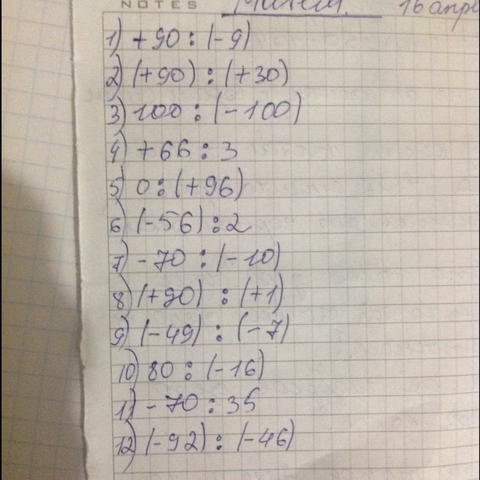 NOTES
Матем. 16 апре
1) +90 : (-9)
2) (+90) : (+30)
3) 100 : (-100)
4) +66 : 3
5) 0 : (+96)
6) (-56) : 2
7) -70 : (-10)
8) (+90) : (+1)
9) (-49) : (-7)
10) 80 : (-16)
11) -70 : 35
12) (-92) : (-46)